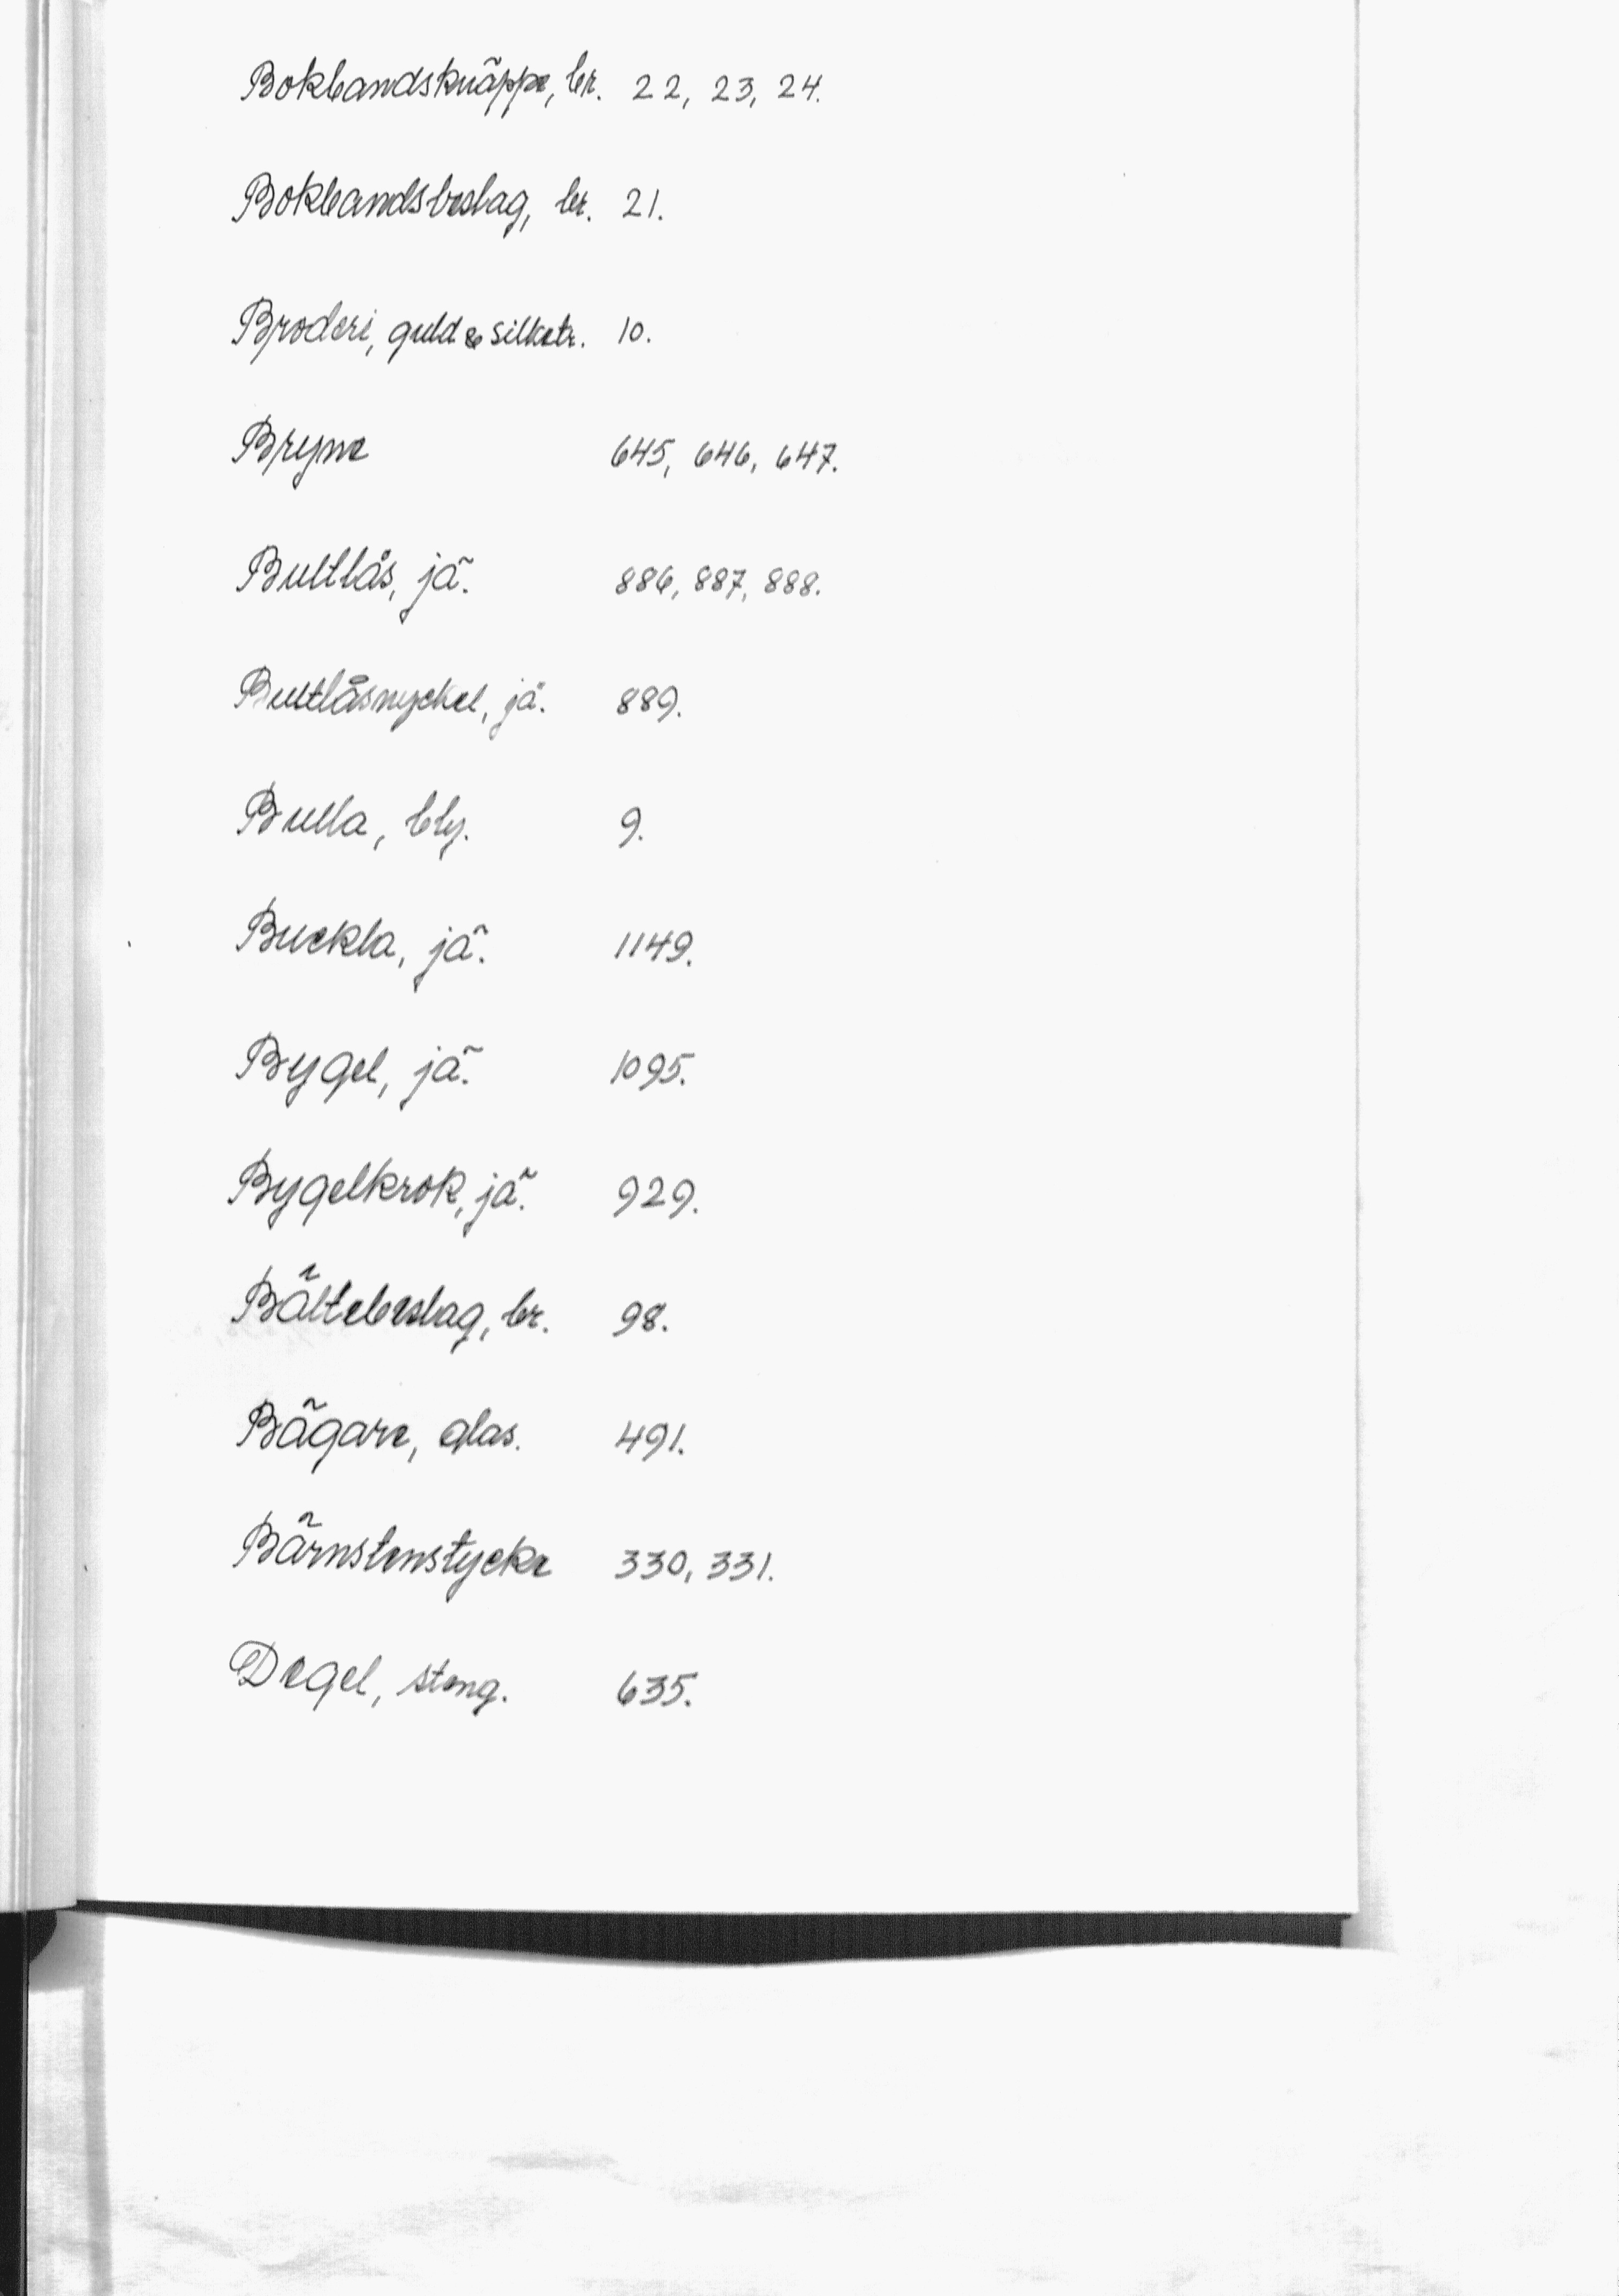 Bokbandsknäppe, br. 22, 23, 24.
Bokbandsbeslag, br. 21.
Broderi, guld & silketr. 10.
Bryne 645, 646, 647.
Bultlås, jä. 886, 887, 888.
Bultlåsnyckel, jä. 889.
Bulla, bly. 9.
Buckla, jä. 1149.
Bygel, jä. 1095.
Bygelkrok, jä. 929.
Bältebeslag, br. 98.
Bägare, glas. 491.
Bärnstenstycke 330, 331.
Degel, steng. 635.